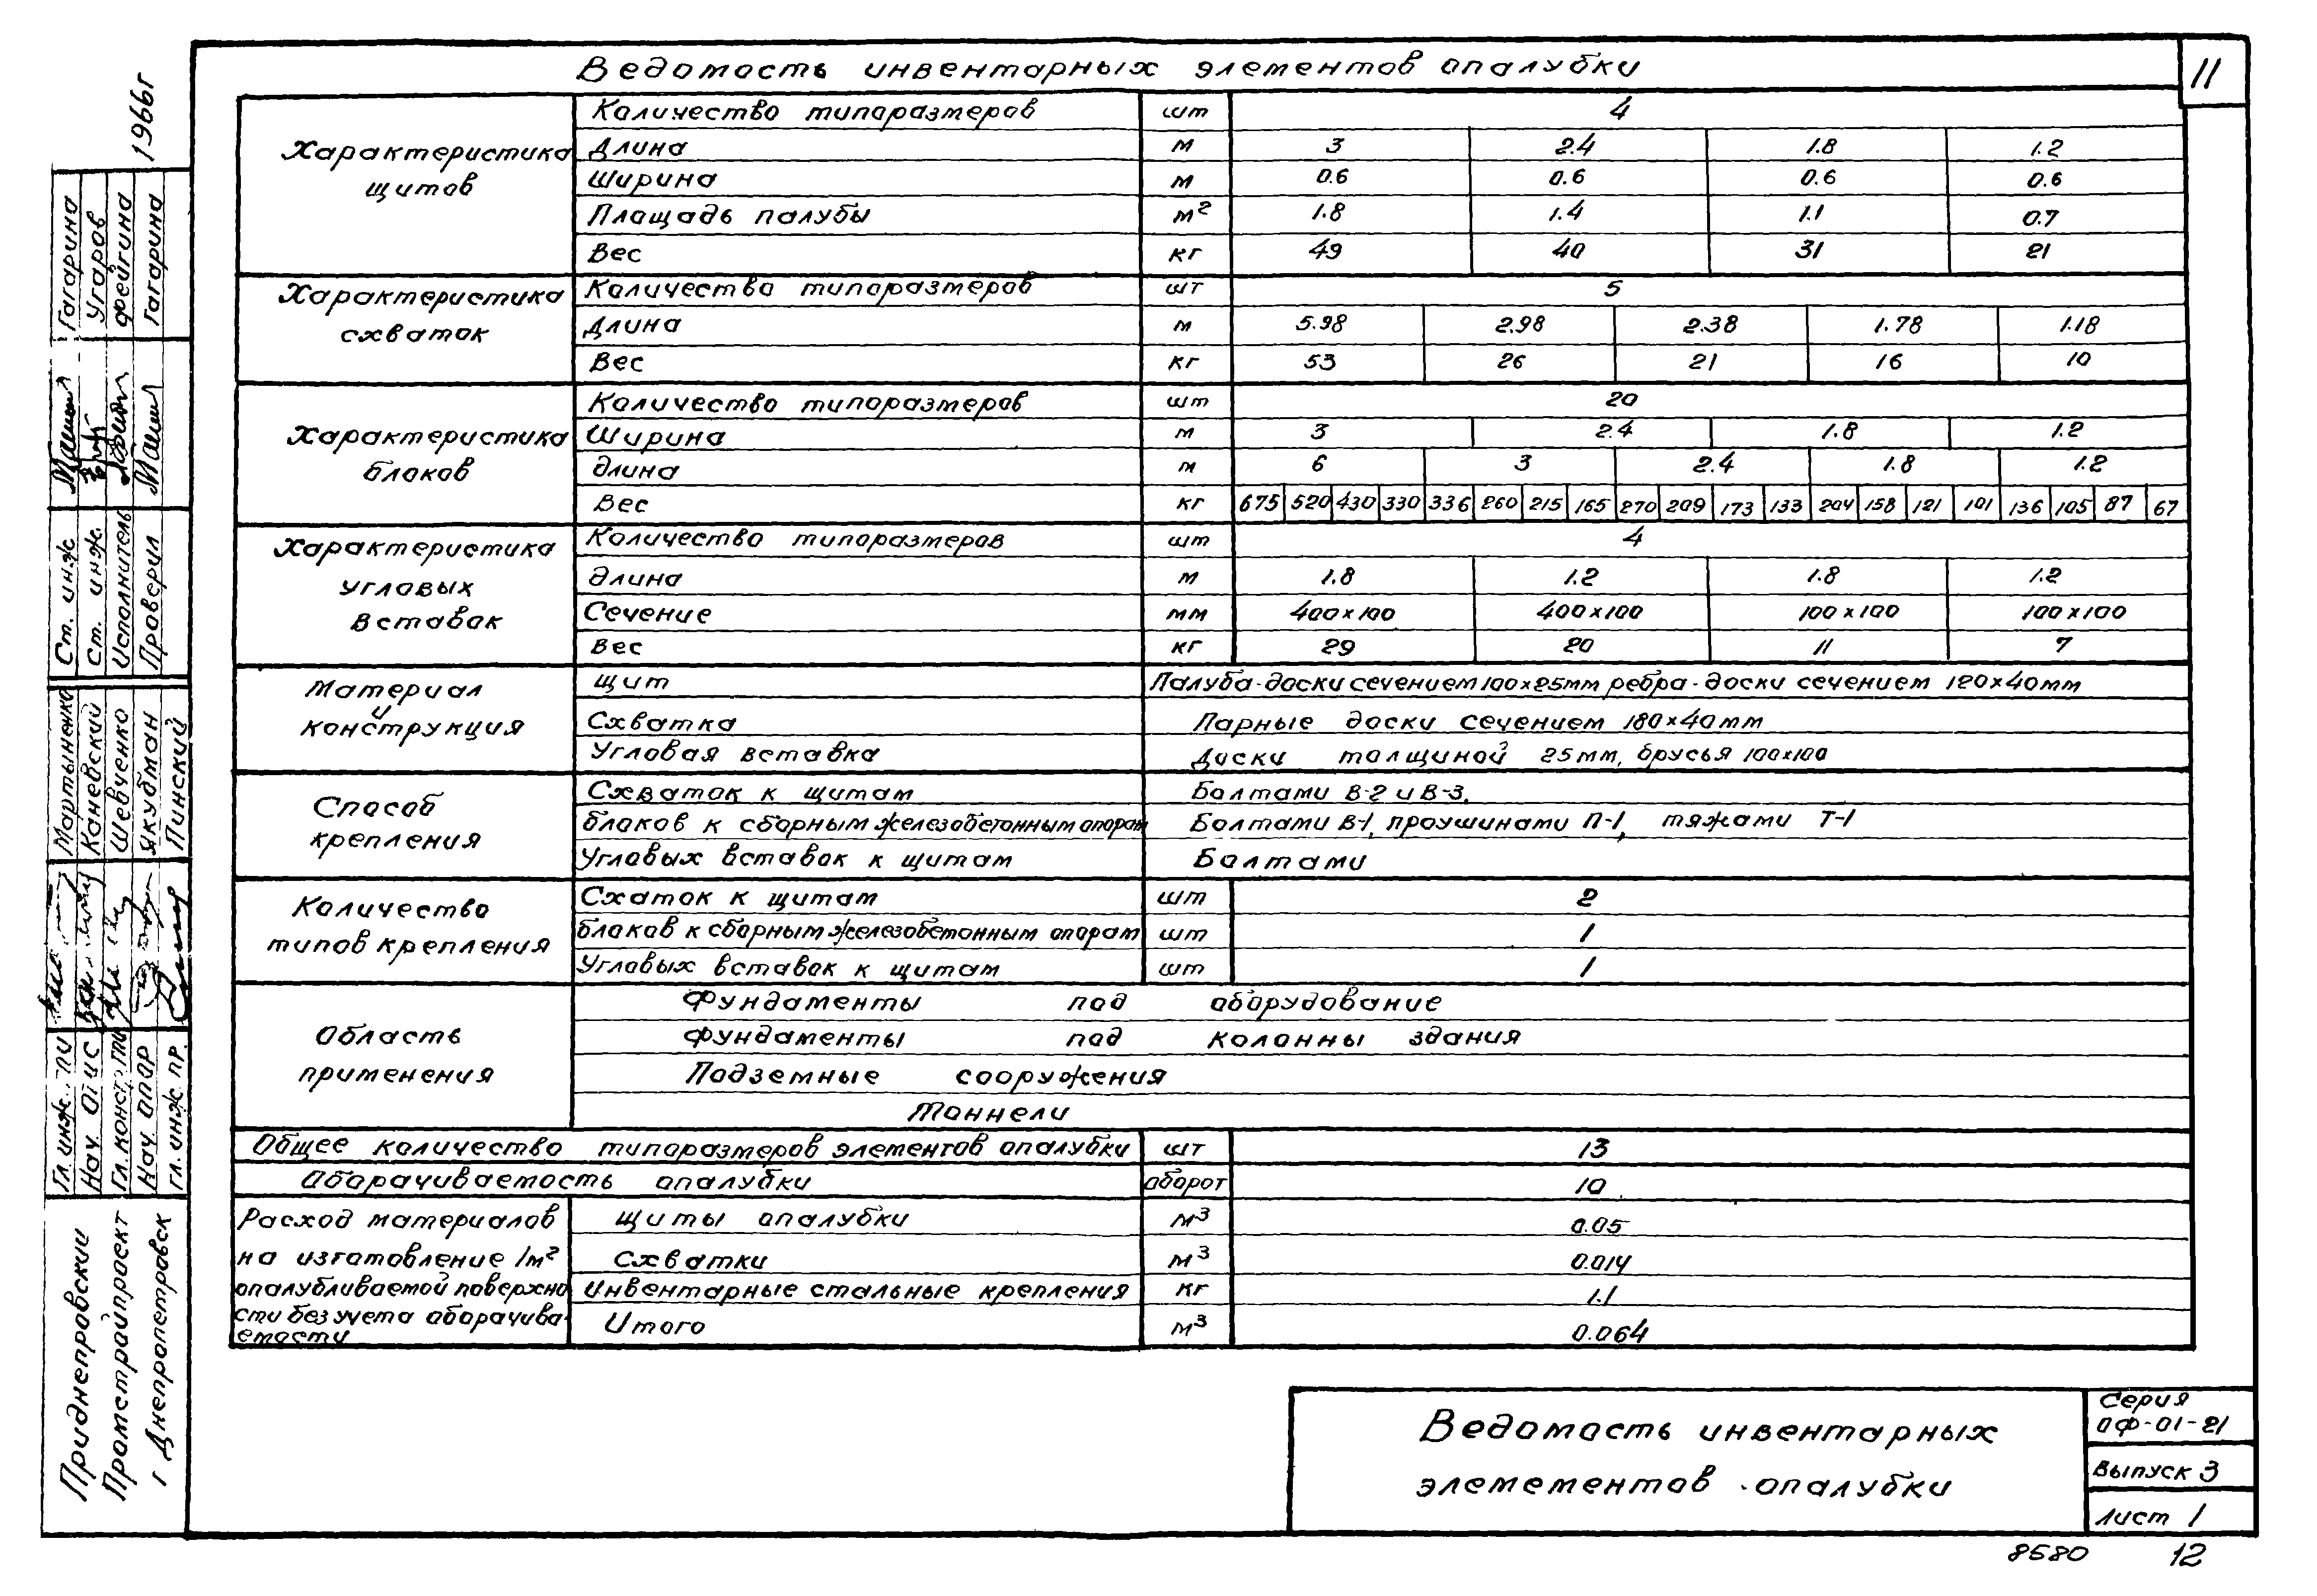 Ведомость инвентарных элементов опалубки
11
Характеристика щитов
Количество типоразмеров шт 4
Длина м 3 2.4 1.8 1.2
Ширина м 0.6 0.6 0.6 0.6
Площадь палубы м² 1.8 1.4 1.1 0.7
Вес кг 49 40 31 21
Характеристика схваток
Количество типоразмеров шт 5
Длина м 5.98 2.98 2.38 1.78 1.18
Вес кг 53 26 21 16 10
Характеристика блоков
Количество типоразмеров шт 20
Ширина м 3 2.4 1.8 1.2
Длина м 6 3 2.4 1.8 1.2
Вес кг 675 520 430 330 336 260 215 165 270 209 173 133 204 158 121 101 136 105 87 67
Характеристика угловых вставок
Количество типоразмеров шт 4
Длина м 1.8 1.2 1.8 1.2
Сечение мм 400х100 400х100 100х100 100х100
Вес кг 29 20 11 7
Материал и конструкция
Щит Палуба-доски сечением 100х25мм ребра-доски сечением 120х40мм
Схватка Парные доски сечением 180х40мм
Угловая вставка Доски толщиной 25мм, брусья 100х100
Способ крепления
Схваток к щитам Болтами В-2 и В-3.
блоков к сборным железобетонным опорам Болтами В-1, проушинами П-1, тяжами Т-1
Угловых вставок к щитам Болтами
Количество типов крепления
Схаток к щитам шт 2
блоков к сборным железобетонным опорам шт 1
Угловых вставок к щитам шт 1
Область применения
Фундаменты под оборудование
Фундаменты под колонны здания
Подземные сооружения
Тоннели
Общее количество типоразмеров элементов опалубки шт 13
Оборачиваемость опалубки оборот 10
Расход материалов
на изготовление 1м²
опалубливаемой поверхно
сти без учета оборачива-
емости
Щиты опалубки м³ 0.05
Схватки м³ 0.014
Инвентарные стальные крепления кг 1.1
Итого м³ 0.064
Ведомость инвентарных
элемементов опалубки
Серия
ОФ-01-21
Выпуск 3
Лист 1
8580 12
1966г
Ст. инж Гагарина
Ст. инж. Угаров
Исполнитель Фейгина
Проверил Гагарина
Гл. инж. Мартыненко
Нач. Каневский
Гл. констр. Шевченко
Нач. Якубман
Гл. инж. пр. Пинский
Приднепровский
Промстройпроект
г Днепропетровск